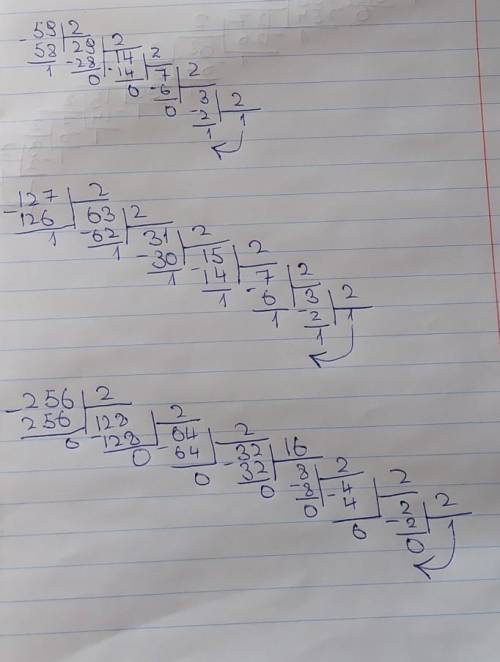 -59 2
58 29 2
1 -28 14 2
0 -14 7 2
0 -6 3 2
0 -2 1
1
-127 2
126 63 2
1 -62 31 2
1 -30 15 2
1 -14 7 2
1 -6 3 2
1 -2 1
1
-256 2
256 128 2
0 -128 64 2
0 -64 -32 16
0 32 8 2
0 -8 -4 2
0 4 -2 2
6 2 1
0